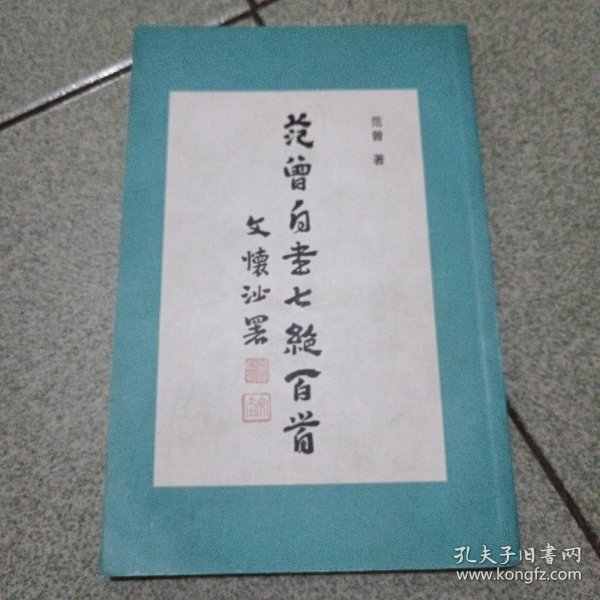 范曾 著
范曾自書七絕百首
文懷沙署
孔夫子旧书网
www.kongfz.com